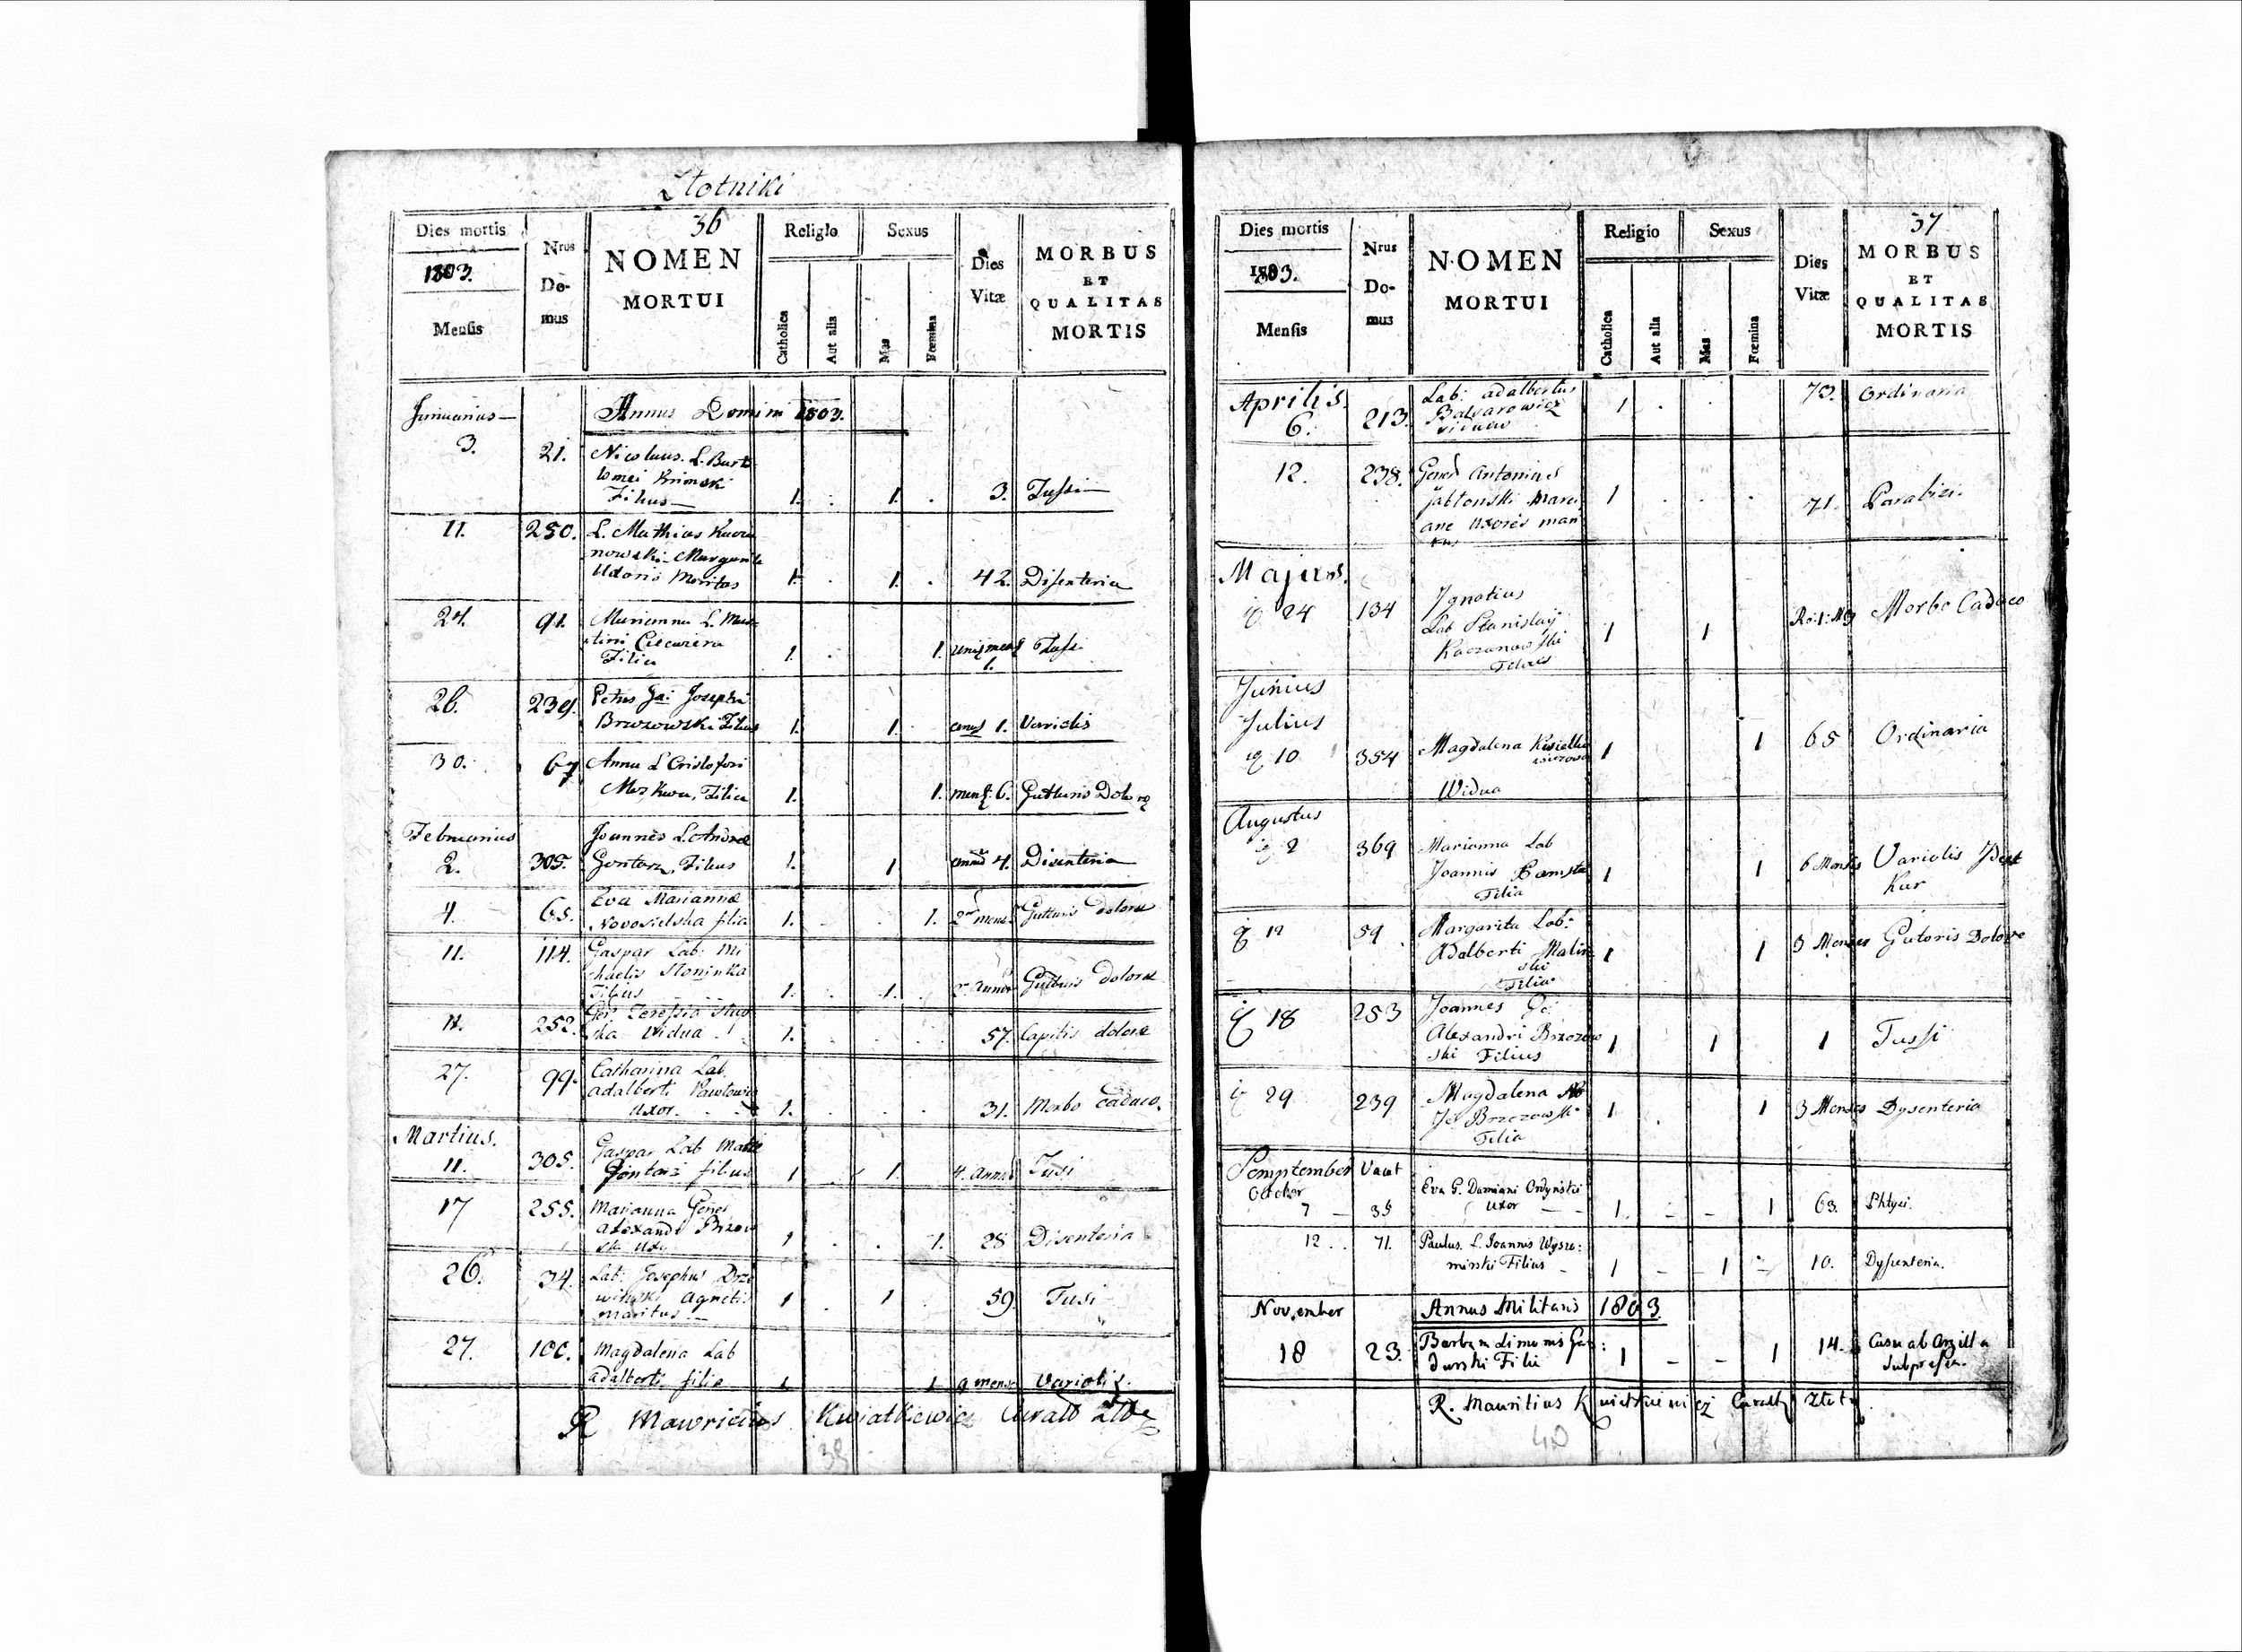 Zlotniki
36
Dies mortis
1803.
Mensis
Nrus
Do-
mus
NOMEN
MORTUI
Religio
Catholica
Aut alia
Sexus
Mas
Fœmina
Dies
Vitæ
MORBUS
ET
QUALITAS
MORTIS
Januarius
Annus Domini 1803.
3. 21. Nicolaus L. Barto
lomei Krimski
Filius 1. 1. 3. Tussi
11. 250. L. Mathias Kacza
nowski Margarite
Uxoris Maritas 1. 1. 42. Disenteria
24. 91. Marianna L. Mar
tini Ciecwiera
Filia 1. 1. 1. Tussi
26. 239. Petrus Ga: Josephi
Brzozowski Filius 1. 1. 1. Variolis
30. 67 Anna L Cristofori
Mozkwa, Filia 1. 1. mens: 6. Gutturis Dolore
Februarius Joannes L. Andree
2. 305. Gontarz, Filius 1. 1 4. Disenteria
4. 65. Eva Marianna
Novosielska filia 1. 1. 2 mens. Gutturis dolore
11. 114. Gaspar Lab: Mi
chaelis Sloninka
Filius 1. 1. 2 annor Gutturis dolore
11. 252. Teressia
ska Vidua 1. 57. Capitis dolore
27. 99. Catharina Lab.
Adalberti Pawlowic
Uxor 1. 31. Morbo caduco.
Martius.
11. 305. Gaspar Lab Mathe
Gontarz filius 1 1. 4. annor Tusi
17 255. Marianna Gener
Alexandri Brzozow
ski Uxor 1 1. 28 Disenteria
26. 34. Lab: Josephus Drze
winski Agneti:
maritus 1 1 59 Tusi
27. 100. Magdalena Lab
Adalberti filia 1 1 9 mens Variolis.
R Mauricius Kwiatkiewicz
39
37
Dies mortis
1803.
Mensis
Nrus
Do-
mus
NOMEN
MORTUI
Religio
Catholica
Aut alia
Sexus
Mas
Fœmina
Dies
Vitæ
MORBUS
ET
QUALITAS
MORTIS
Aprilis.
6. 213. Lab: Adalbertus
Balvarowicz
1 73. Ordinaria
12. 238. Gener Antonius
Jablonski Mari
ane Uxoris mari
tus 1 71. Paralizi.
Majus.
24 134 Ignatius
Lab Stanislaij
Kaczanowski
Filius 1 1 Morbo Caduco
Junius
Julius
10 354 Magdalena
Widua 1 1 65 Ordinaria
Augustus
2 369 Marianna Lab
Joannis
Filia 1 1 6 Mensis Variolis
Kur
12 59 Margarita Lab:
Adalberti Malin
ski
Filia 1 1 3 Menses Gutoris Dolore
18 253 Joannes Ge:
Alexandri Brzozow
ski Filius 1 1 1 Tussi
29 239 Magdalena
Brzozowski
Filia 1 1 3 Menses Dysenteria
Semptember Vacat
October
7 35 Eva G. Damiani Ordynski
Uxor 1. 1 63. Phtysi.
12. 71. Paulus. L. Joannis Wysze:
minski Filius 1 1 10. Dyssenteria.
November Annus Militaris 1803
18 23. Barbara Simonis
durski Filia 1 1 14. Casu ab Argilla
Subpressa.
R. Mauritius
40